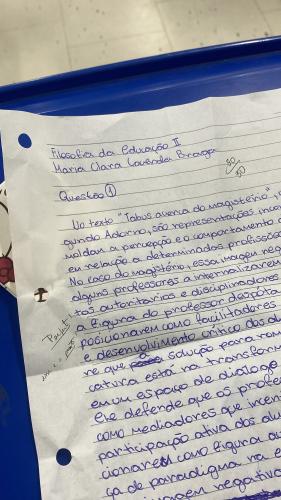 Filosofia da Educação II
Maria Clara Lavender Braga
50
50
Questão 1
No texto "Tabus acerca do magistério",
gundo Adorno, são representações inco
moldam a percepção e o comportamento
em relação a determinadas profissões
No caso do magistério, essa imagem neg
alguns professores a internalizarem
tas autoritárias e disciplinadoras
a figura do professor déspota
posicionarem como facilitadores
e desenvolvimento crítico dos alu
re que solução para rom
catura está na transform
em um espaço de diálogo
Ele defende que os profes
como mediadores que incen
participação ativa dos alu
cionarem como figuras au
ça de paradigma na e
imagem negativa